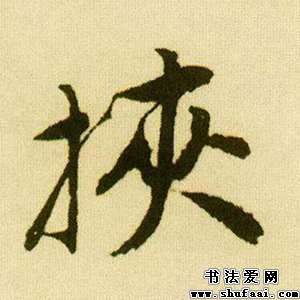 挾
书法爱网
www.shufaai.com